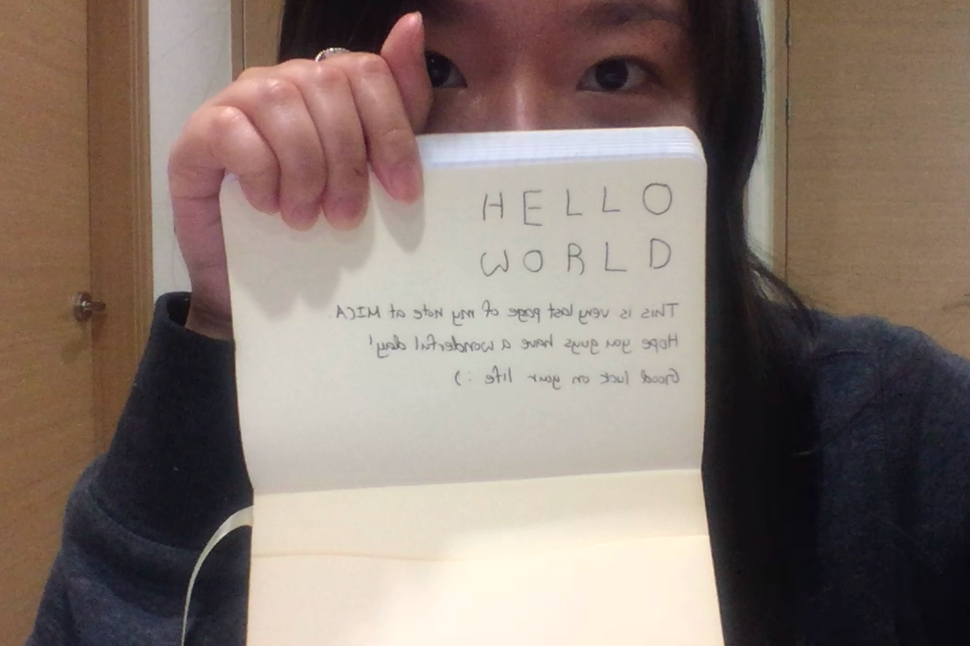 HELLO
WORLD
This is very last page of my note at MICA.
Hope you guys have a wonderful day!
Good luck on your life :)